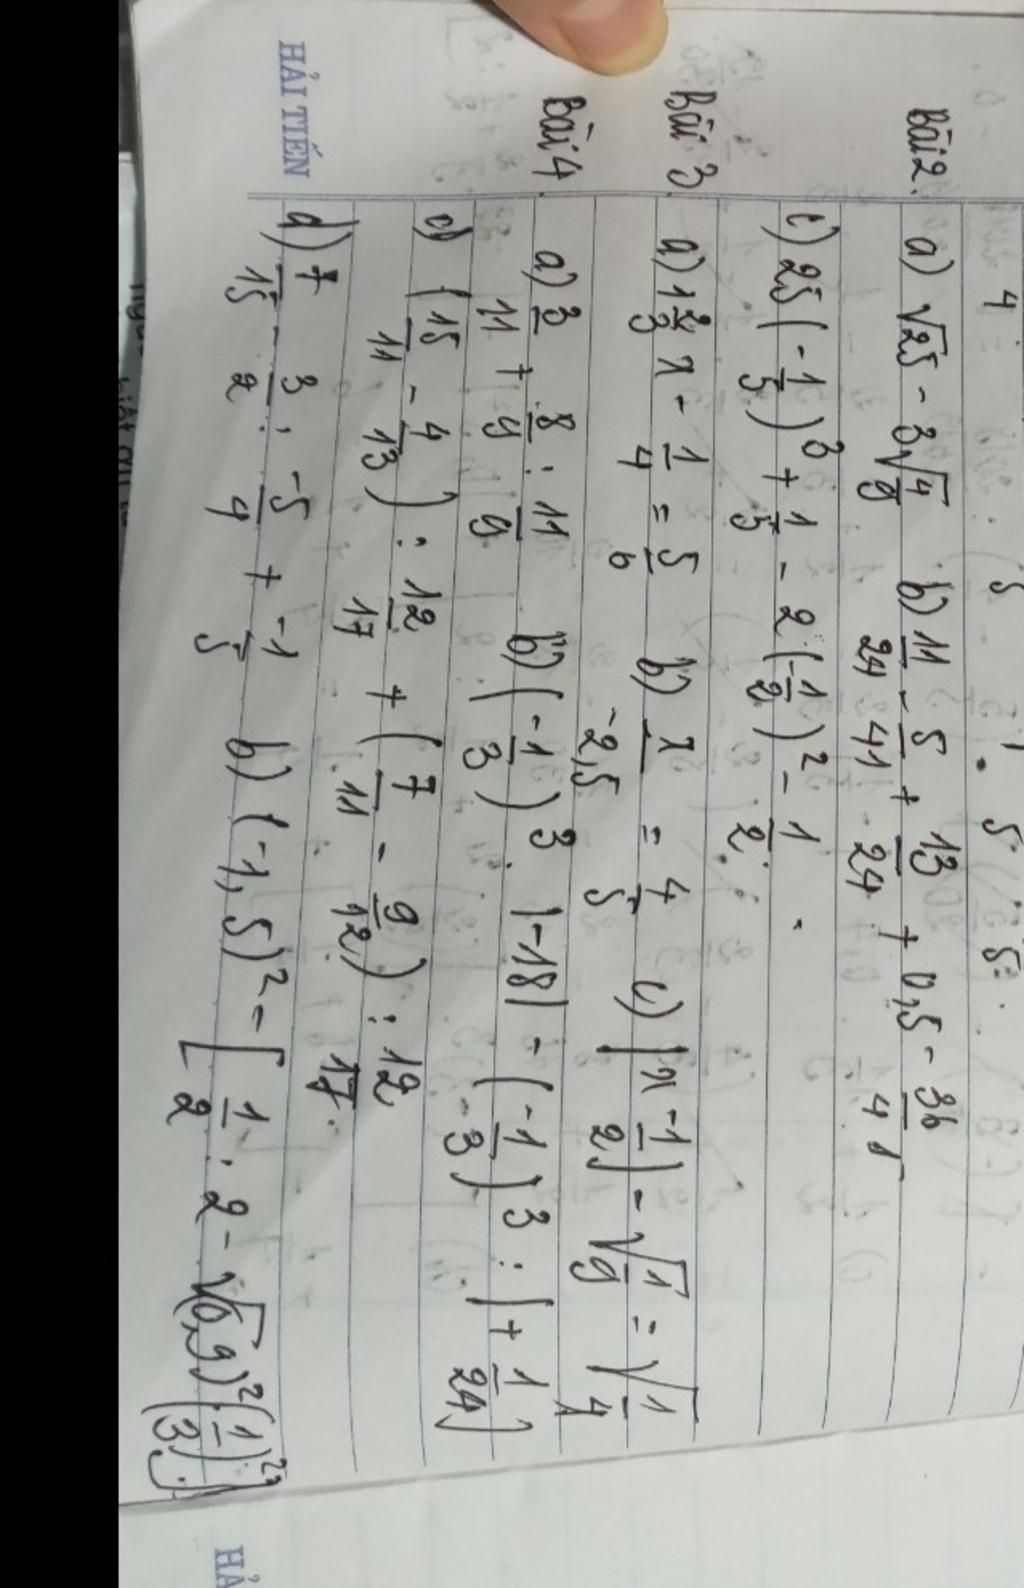 Bài 2. a) √25 - 3√(4/9) b) 11/24 - 5/41 + 13/24 + 0,5 - 36/41
c) 25(-1/5)³ + 1/5 - 2(-1/2)² - 1/2
Bài 3 a) 1 2/3 x - 1/4 = 5/6 b) x/-2,5 = 4/5 c) |x - 1/2| - √(1/9) = √(1/4)
Bài 4. a) 3/11 + 8/9 : 11/9 b) (-1/3)³ . |-18| - (-1/3)³ : |+ 1/24|
c) (15/11 - 4/13) : 12/17 + (7/11 - 9/12) : 12/17.
d) 7/15 - 3/2 . -5/4 + -1/5 b) (-1,5)² - [1/2 . 2 - √(0,9)² (1/3)²]
HẢI TIẾN